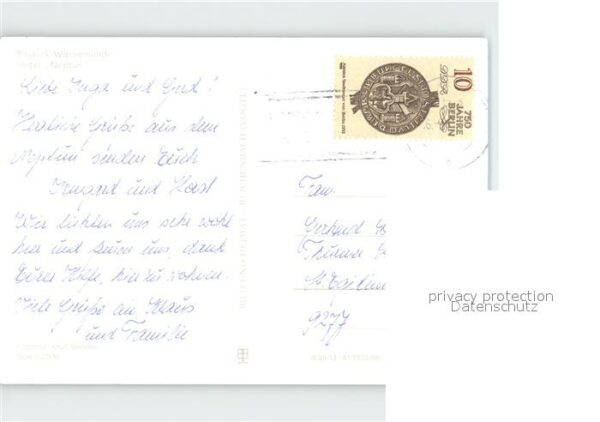 Rostock-Warnemünde
Hotel „Neptun"
Liebe Inga und Gerd!
Herzliche Grüße aus dem
Neptun senden Euch
Irmgard und Horst
Wir fühlen uns sehr wohl
hier und freuen uns, dank
Eurer Hilfe, hier zu wohnen.
Viele Grüße an Klaus
und Familie
10
DDR
750
JAHRE
BERLIN
Fam.
Gerhard
St. Egidien
9277
privacy protection
Datenschutz